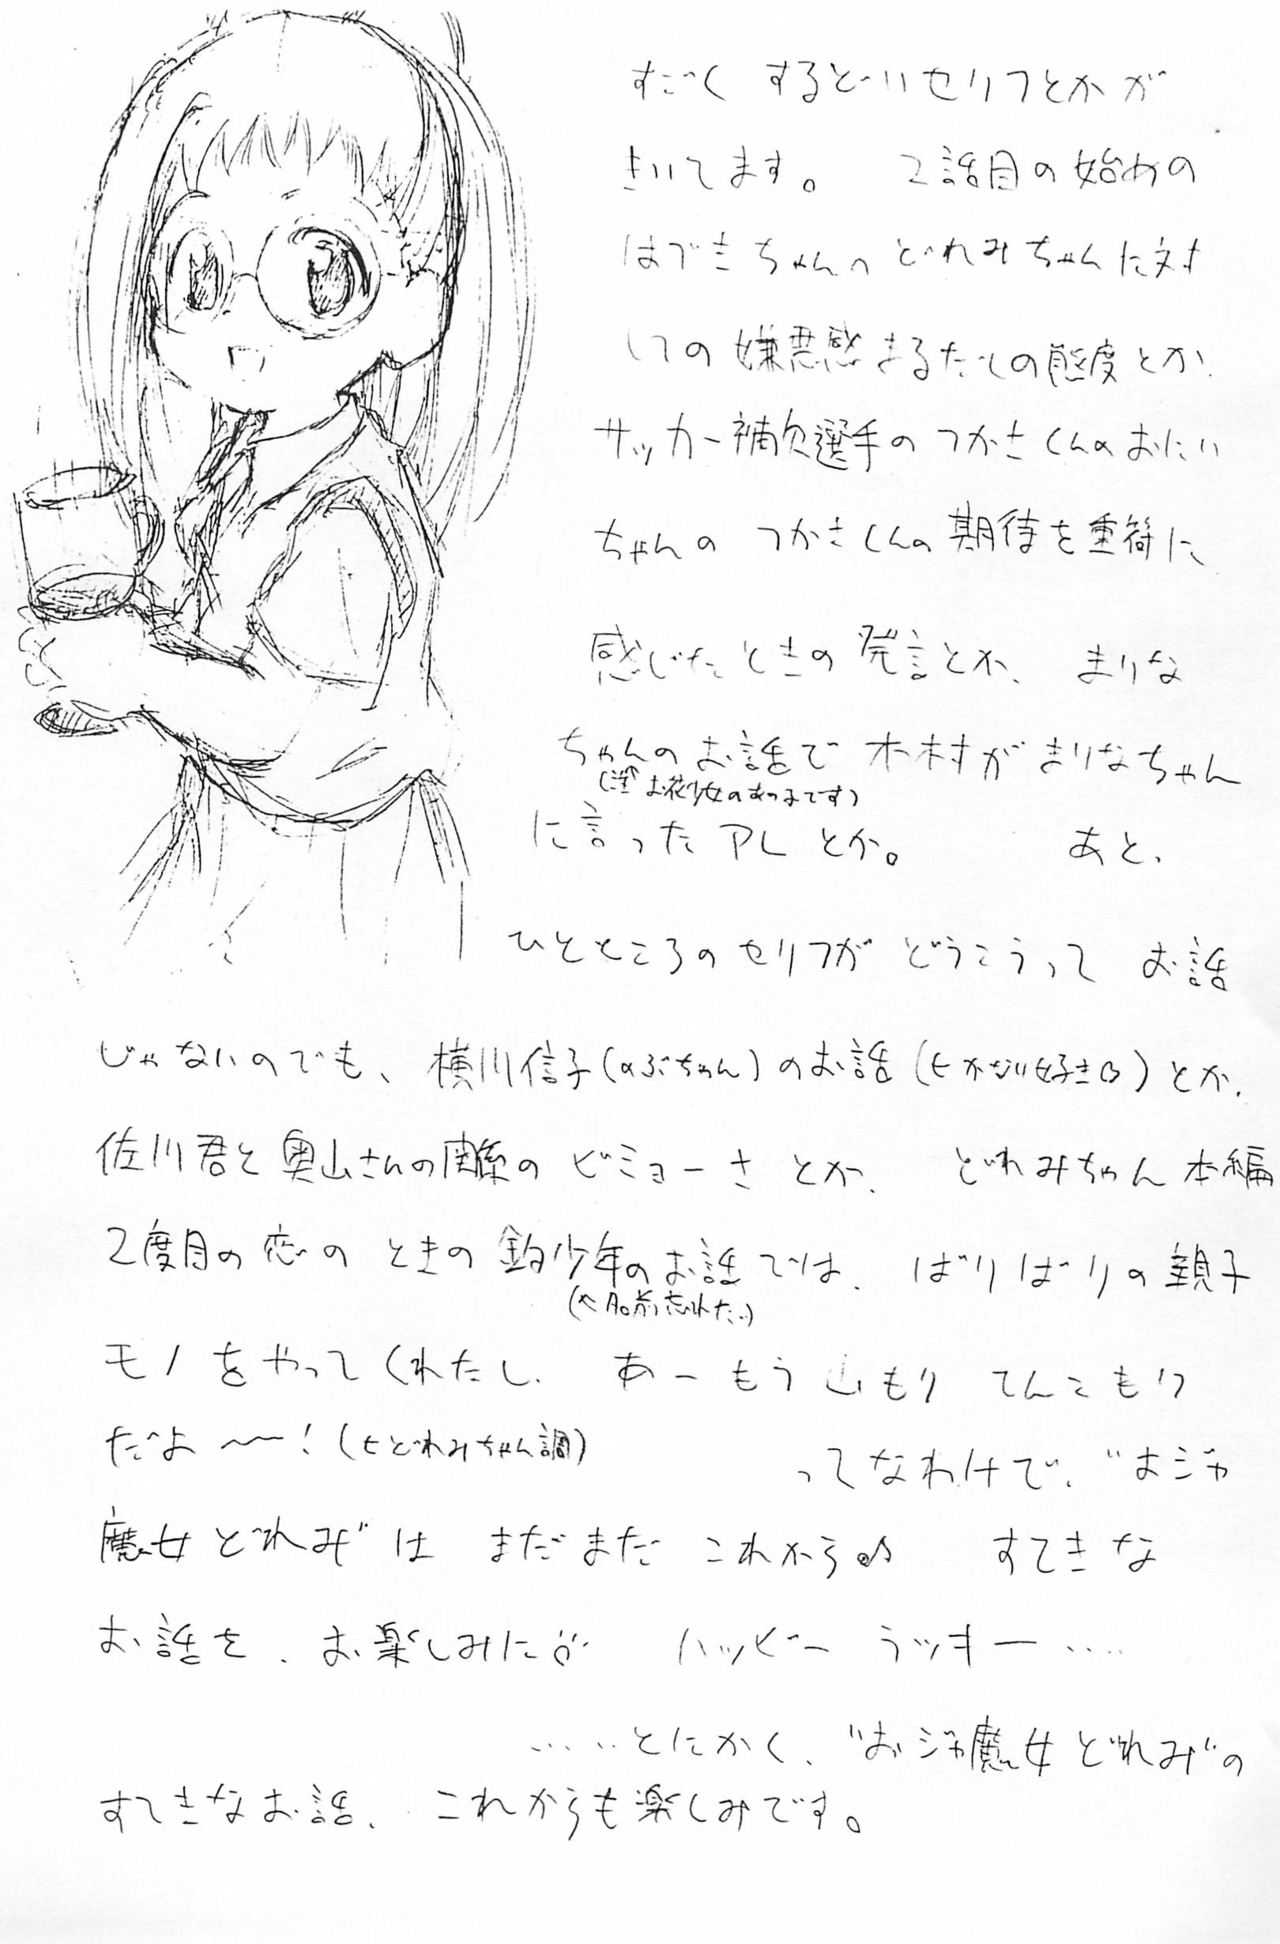 すごく するどいセリフとかが
きいてます。 2話目の始めの
はづきちゃんの どれみちゃんに対
しての 嫌悪感まるだしの態度とか、
サッカー補欠選手の つかさくんのおにい
ちゃんの つかさくんの 期待を重荷に
感じたときの 発言とか、 まりな
ちゃんのお話で 木村が まりなちゃん
(注↑お花少女のあの子です)
に言ったアレ とか。 あと、
ひとところのセリフが どうこうって お話
じゃないのでも、 横川信子(のぶちゃん)のお話(←かなり好き)とか、
佐川君と 奥山さんの関係の ビミョーさ とか、 どれみちゃん本編
2度目の 恋の ときの 釣少年のお話では、 ばりばりの親子
(↑名前忘れた)
モノ をやってくれたし、 あーもう 山もり てんこもり
だよ〜〜!(←どれみちゃん調)
ってなわけで、"おジャ
魔女どれみ"は まだまだ これから♪ すてきな
お話を、 お楽しみに ハッピー ラッキー‥‥
‥‥とにかく、"おジャ魔女どれみ"の
すてきなお話、 これからも楽しみです。